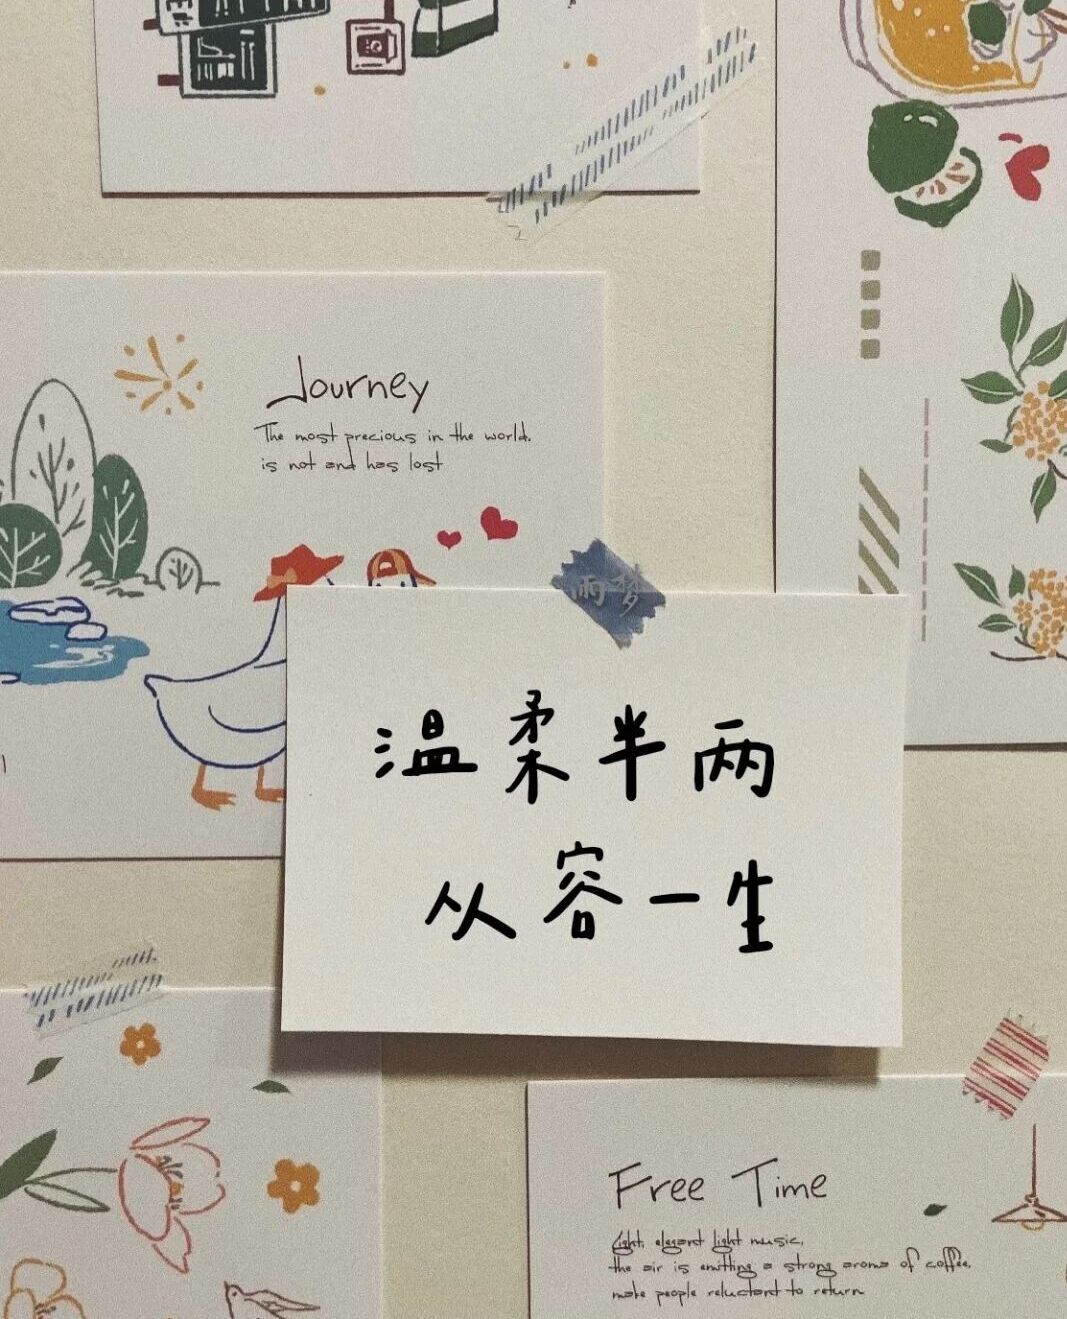 Journey
The most precious in the world.
is not and has lost
雨梦
温柔半两
从容一生
Free Time
Light, elegant light music,
the air is emitting a strong aroma of coffee,
make people reluctant to return